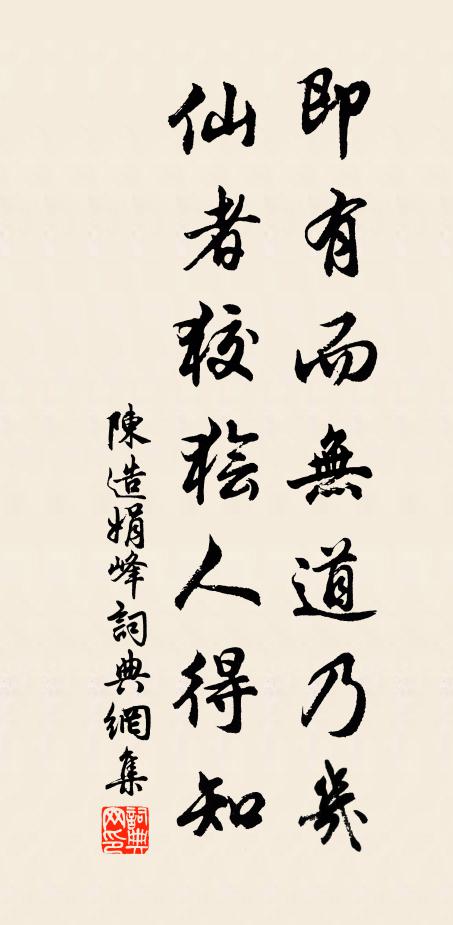 即有而無道乃幾
仙者狡獪人得知
陳造娟峰詞典網集
詞典網印